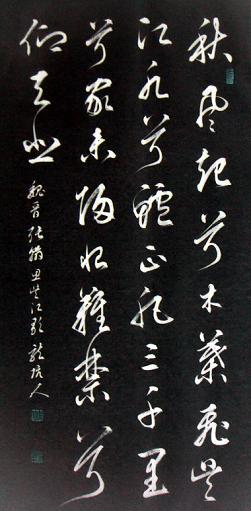 秋風起兮木葉飛吳
江水兮鱸正肥三千里
兮家未歸恨難禁兮
仰天悲
魏晉張翰思吳江歌 龍坑人